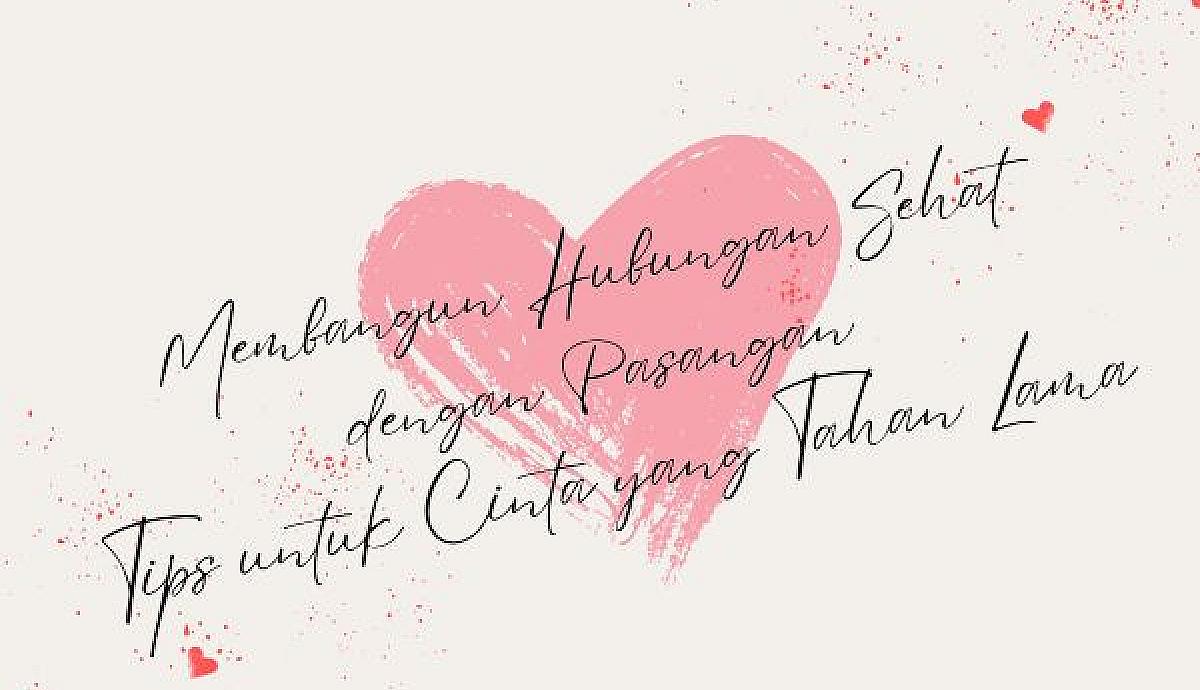 Membangun Hubungan Sehat
dengan Pasangan
Tips untuk Cinta yang Tahan Lama